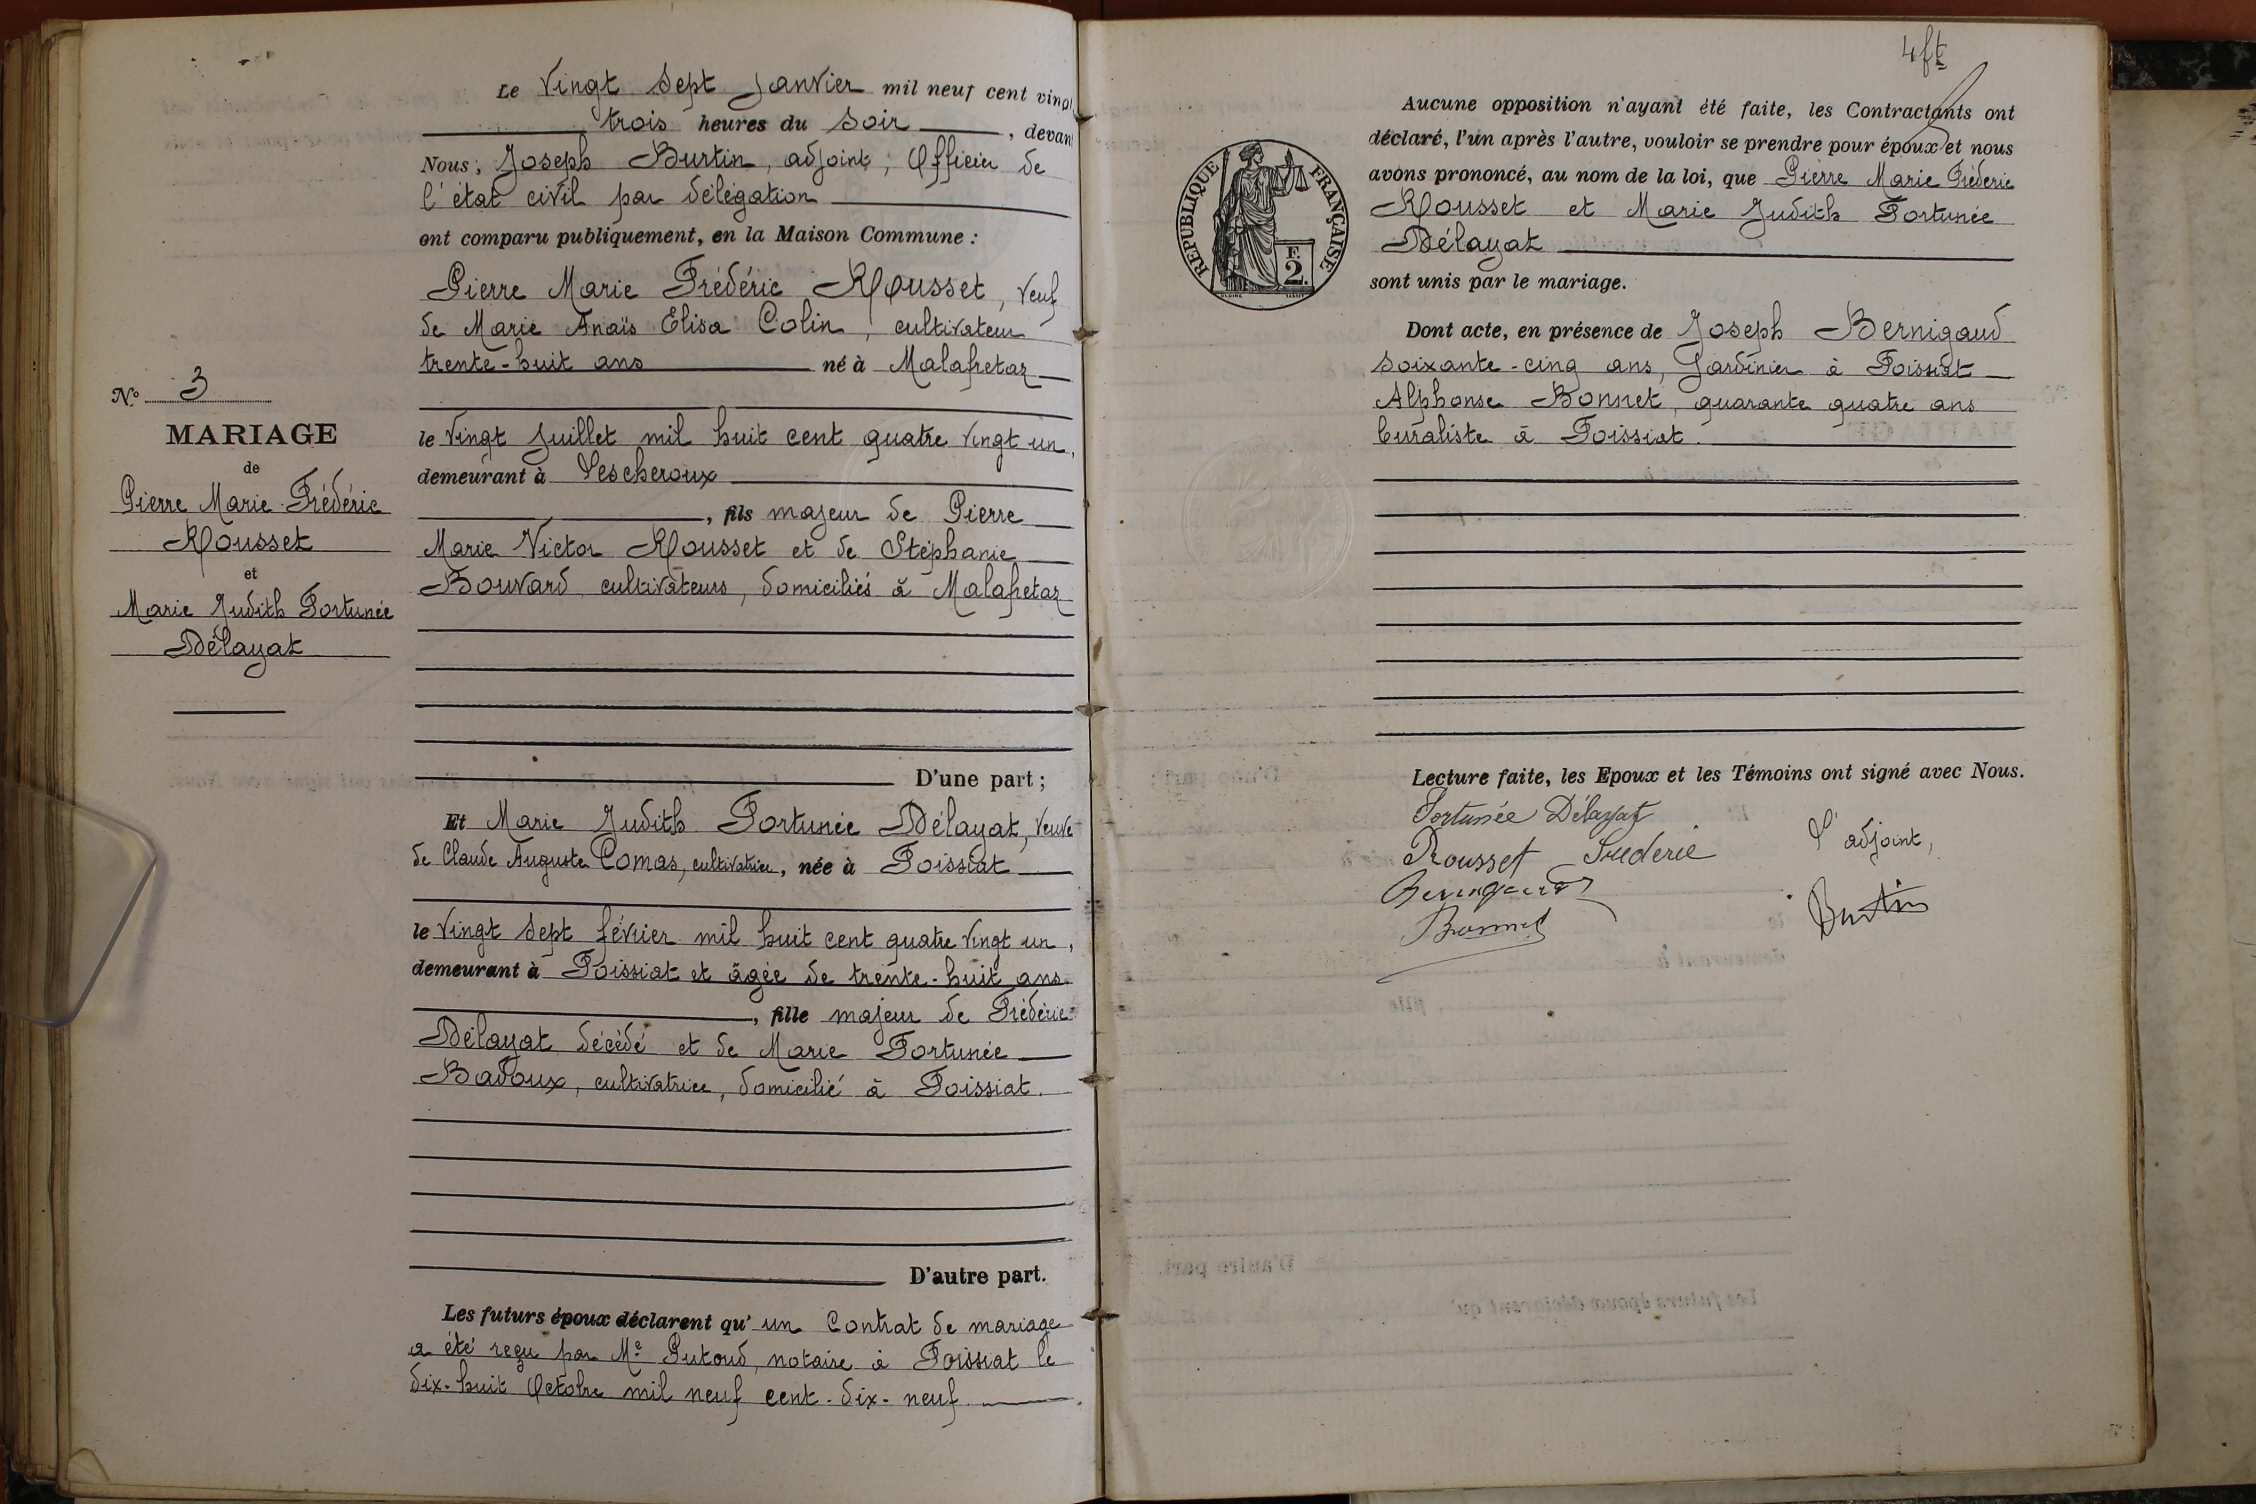 Le Vingt Sept Janvier mil neuf cent vingt
trois heures du Soir, devant
Nous, Joseph Burtin, adjoint, Officier de
l'état civil par délégation
ont comparu publiquement, en la Maison Commune :
Pierre Marie Frédéric Rousset, Veuf
de Marie Anaïs Elisa Colin, cultivateur
trente-huit ans né à Malafretaz
le Vingt Juillet mil huit cent quatre vingt un,
demeurant à Lescheroux
, fils majeur de Pierre
Marie Victor Rousset et de Stéphanie
Bouvard cultivateurs, domiciliés à Malafretaz
N° 3
MARIAGE
de
Pierre Marie Frédéric
Rousset
et
Marie Judith Fortunée
Délayat
D'une part ;
Et Marie Judith Fortunée Délayat, Veuve
de Claude Auguste Comas, cultivatrice, née à Foissiat
le Vingt Sept février mil huit cent quatre vingt un,
demeurant à Foissiat et âgée de trente-huit ans
, fille majeur de Frédéric
Délayat décédé et de Marie Fortunée
Badoux, cultivatrice, domicilié à Foissiat.
D'autre part.
Les futurs époux déclarent qu' un Contrat de mariage
a été reçu par Me Putoud, notaire à Foissiat le
dix-huit Octobre mil neuf cent-dix-neuf.
4 ft
RÉPUBLIQUE FRANÇAISE
F.
2.
Aucune opposition n'ayant été faite, les Contractants ont
déclaré, l'un après l'autre, vouloir se prendre pour époux et nous
avons prononcé, au nom de la loi, que Pierre Marie Fréderic
Rousset et Marie Judith Fortunée
Délayat
sont unis par le mariage.
Dont acte, en présence de Joseph Bernigaud
Soixante-cinq ans, Jardinier à Foissiat
Alphonse Bonnet, quarante quatre ans
buraliste à Foissiat.
Lecture faite, les Epoux et les Témoins ont signé avec Nous.
Fortunée Délayat
Rousset Frederic
Bernigaud
Bonnet
L'adjoint,
Burtin